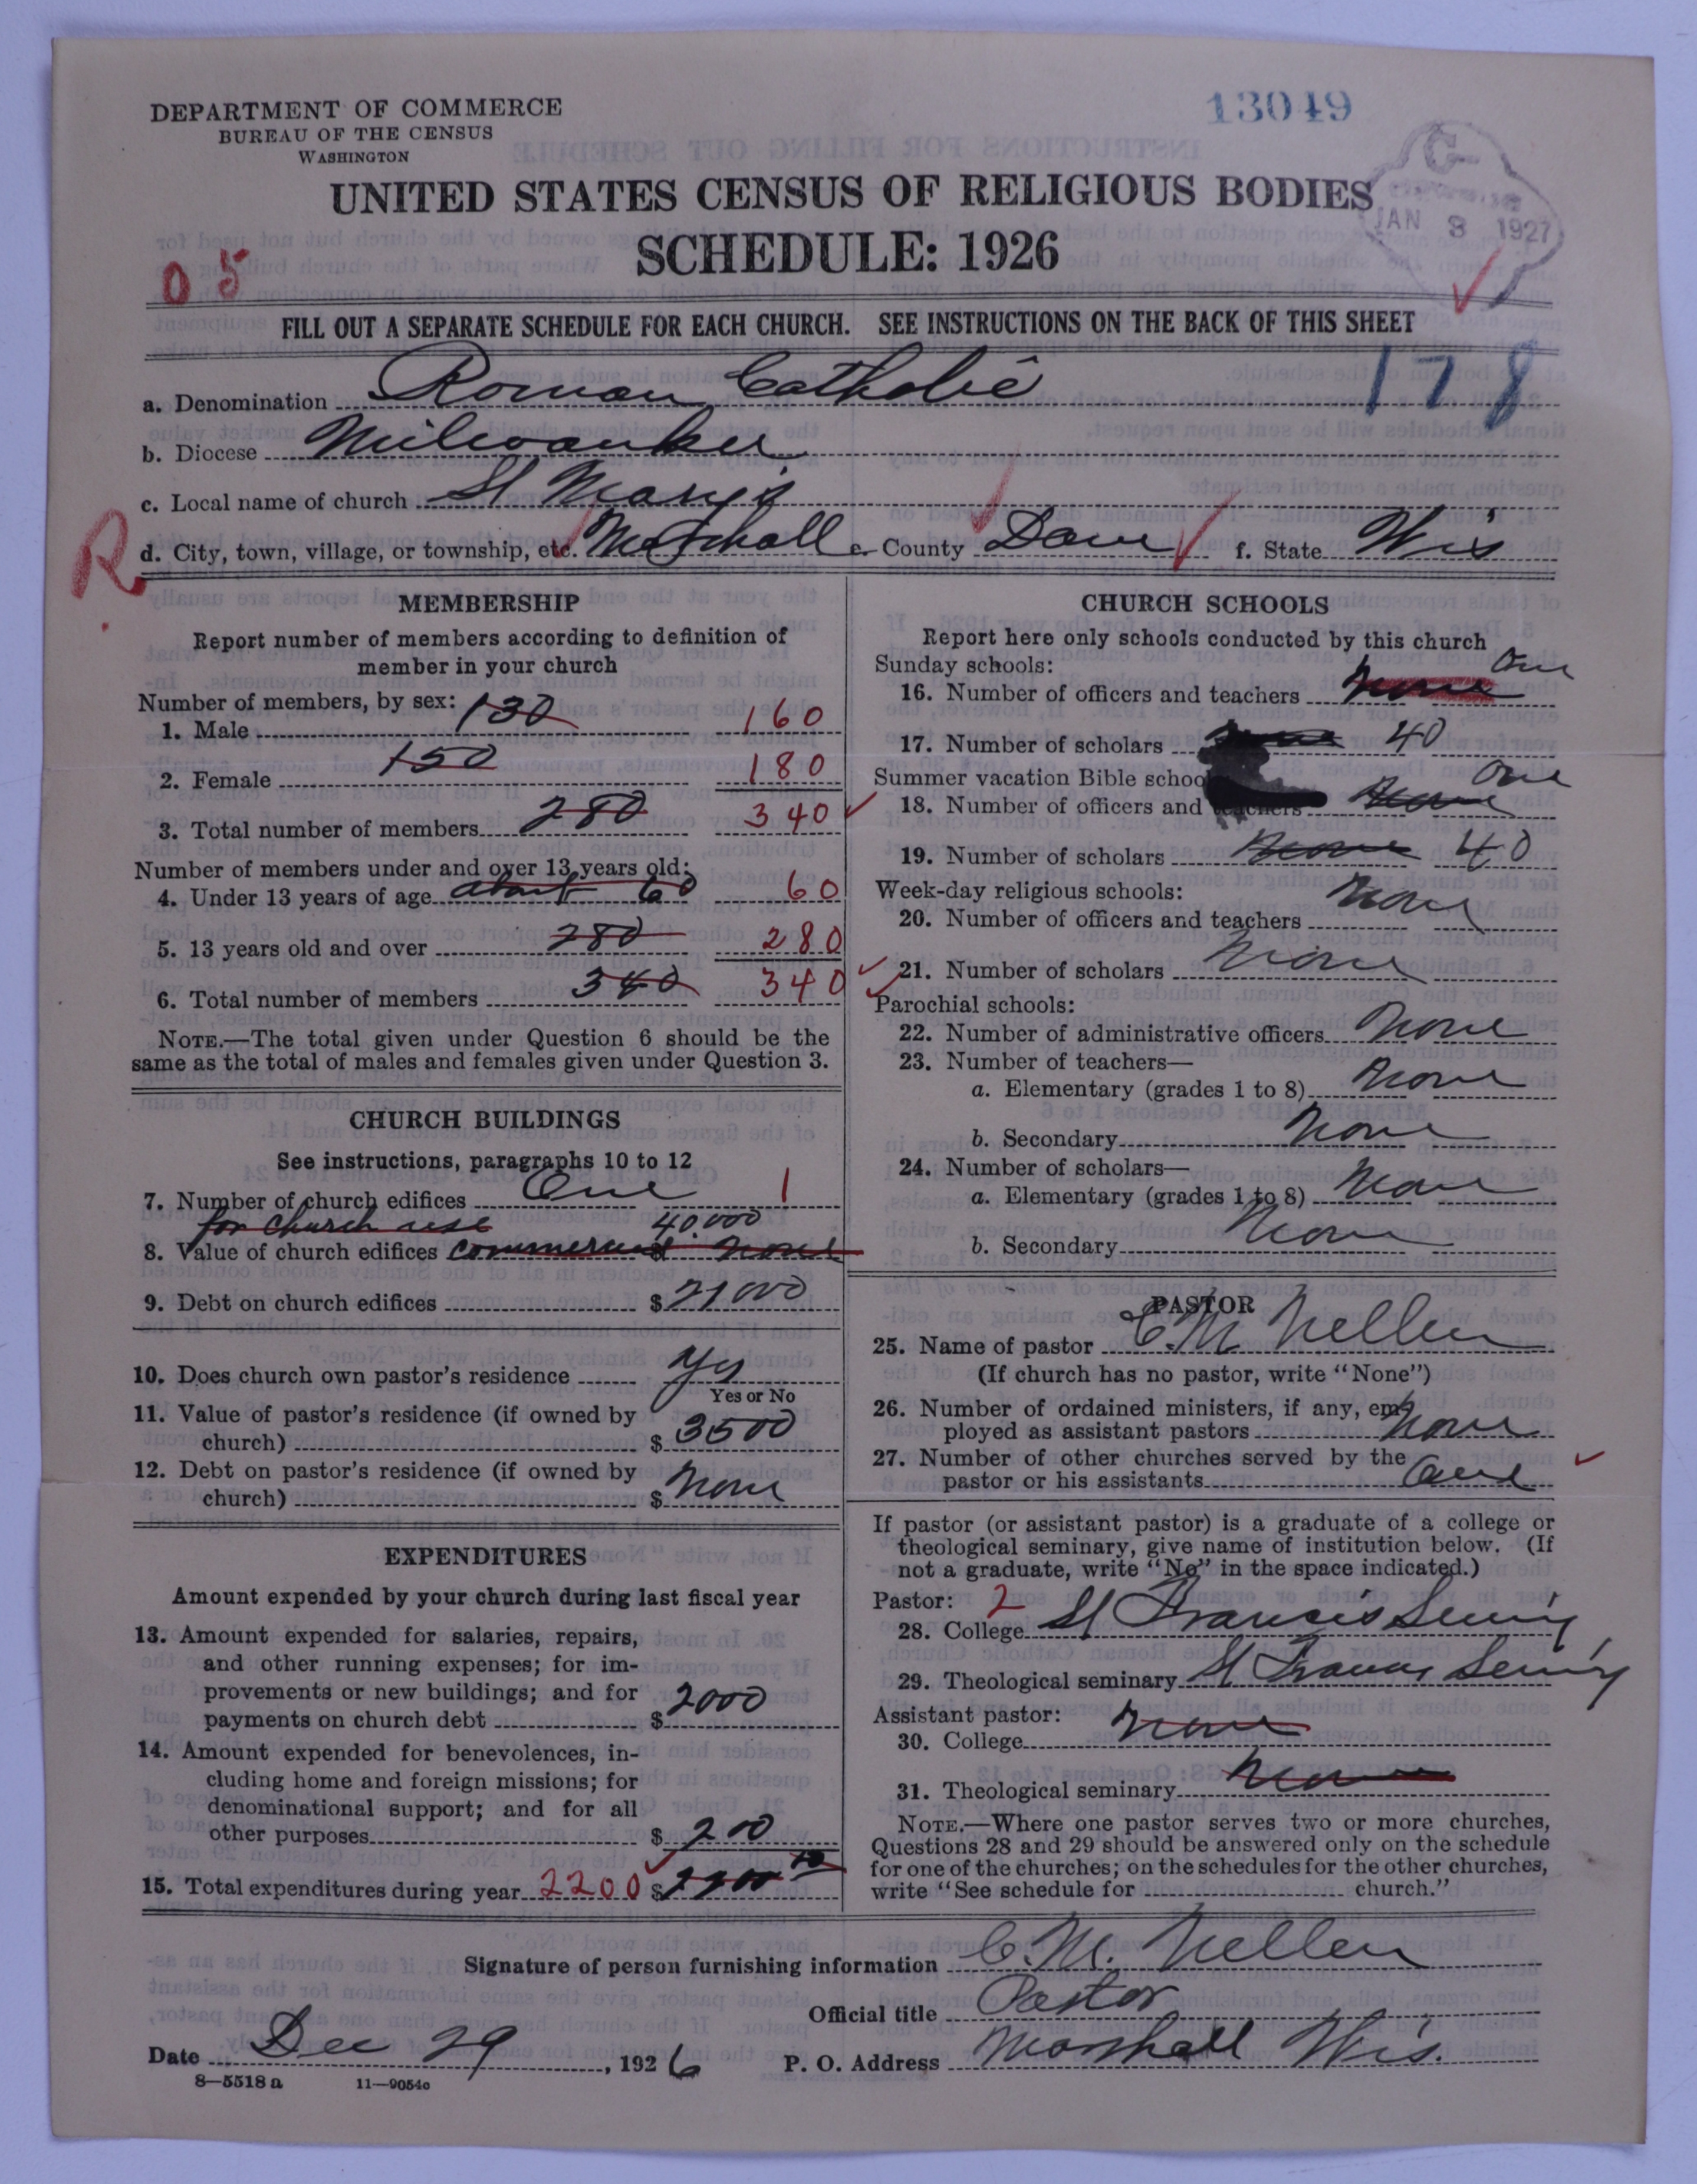 DEPARTMENT OF COMMERCE
BUREAU OF THE CENSUS
WASHINGTON
13049
UNITED STATES CENSUS OF RELIGIOUS BODIES
JAN 3 1927
SCHEDULE: 1926
05
FILL OUT A SEPARATE SCHEDULE FOR EACH CHURCH. SEE INSTRUCTIONS ON THE BACK OF THIS SHEET
178
a. Denomination Roman Catholic
b. Diocese Milwaukee
c. Local name of church St Mary's
R
d. City, town, village, or township, etc. Marshall e. County Dane f. State Wis
MEMBERSHIP
Report number of members according to definition of
member in your church
Number of members, by sex:
1. Male 130 160
2. Female 150 180
3. Total number of members 280 340
Number of members under and over 13 years old:
4. Under 13 years of age about 60 60
5. 13 years old and over 280 280
6. Total number of members 340 340
NOTE.—The total given under Question 6 should be the
same as the total of males and females given under Question 3.
CHURCH BUILDINGS
See instructions, paragraphs 10 to 12
7. Number of church edifices One 1
for church use 40.000
8. Value of church edifices commercial $ none
9. Debt on church edifices $ 21000
10. Does church own pastor's residence Yes
Yes or No
11. Value of pastor's residence (if owned by
church) $ 3500
12. Debt on pastor's residence (if owned by
church) $ None
EXPENDITURES
Amount expended by your church during last fiscal year
13. Amount expended for salaries, repairs,
and other running expenses; for im-
provements or new buildings; and for
payments on church debt $ 2000
14. Amount expended for benevolences, in-
cluding home and foreign missions; for
denominational support; and for all
other purposes $ 200
15. Total expenditures during year 2200 $
CHURCH SCHOOLS
Report here only schools conducted by this church
Sunday schools:
16. Number of officers and teachers None One
17. Number of scholars None 40
Summer vacation Bible school
18. Number of officers and teachers None One
19. Number of scholars None 40
Week-day religious schools:
20. Number of officers and teachers None
21. Number of scholars None
Parochial schools:
22. Number of administrative officers None
23. Number of teachers—
a. Elementary (grades 1 to 8) None
b. Secondary None
24. Number of scholars—
a. Elementary (grades 1 to 8) None
b. Secondary None
PASTOR
25. Name of pastor C. M. Nellen
(If church has no pastor, write "None")
26. Number of ordained ministers, if any, em-
ployed as assistant pastors None
27. Number of other churches served by the
pastor or his assistants One
If pastor (or assistant pastor) is a graduate of a college or
theological seminary, give name of institution below. (If
not a graduate, write "No" in the space indicated.)
Pastor: 2
28. College St Francis Seminy
29. Theological seminary St Francis Seminy
Assistant pastor:
30. College None
31. Theological seminary None
NOTE.—Where one pastor serves two or more churches,
Questions 28 and 29 should be answered only on the schedule
for one of the churches; on the schedules for the other churches,
write "See schedule for church."
Signature of person furnishing information C. M. Nellen
Official title Pastor
Date Dec 29, 1926 P. O. Address Marshall Wis.
8—5518 a 11—9054c